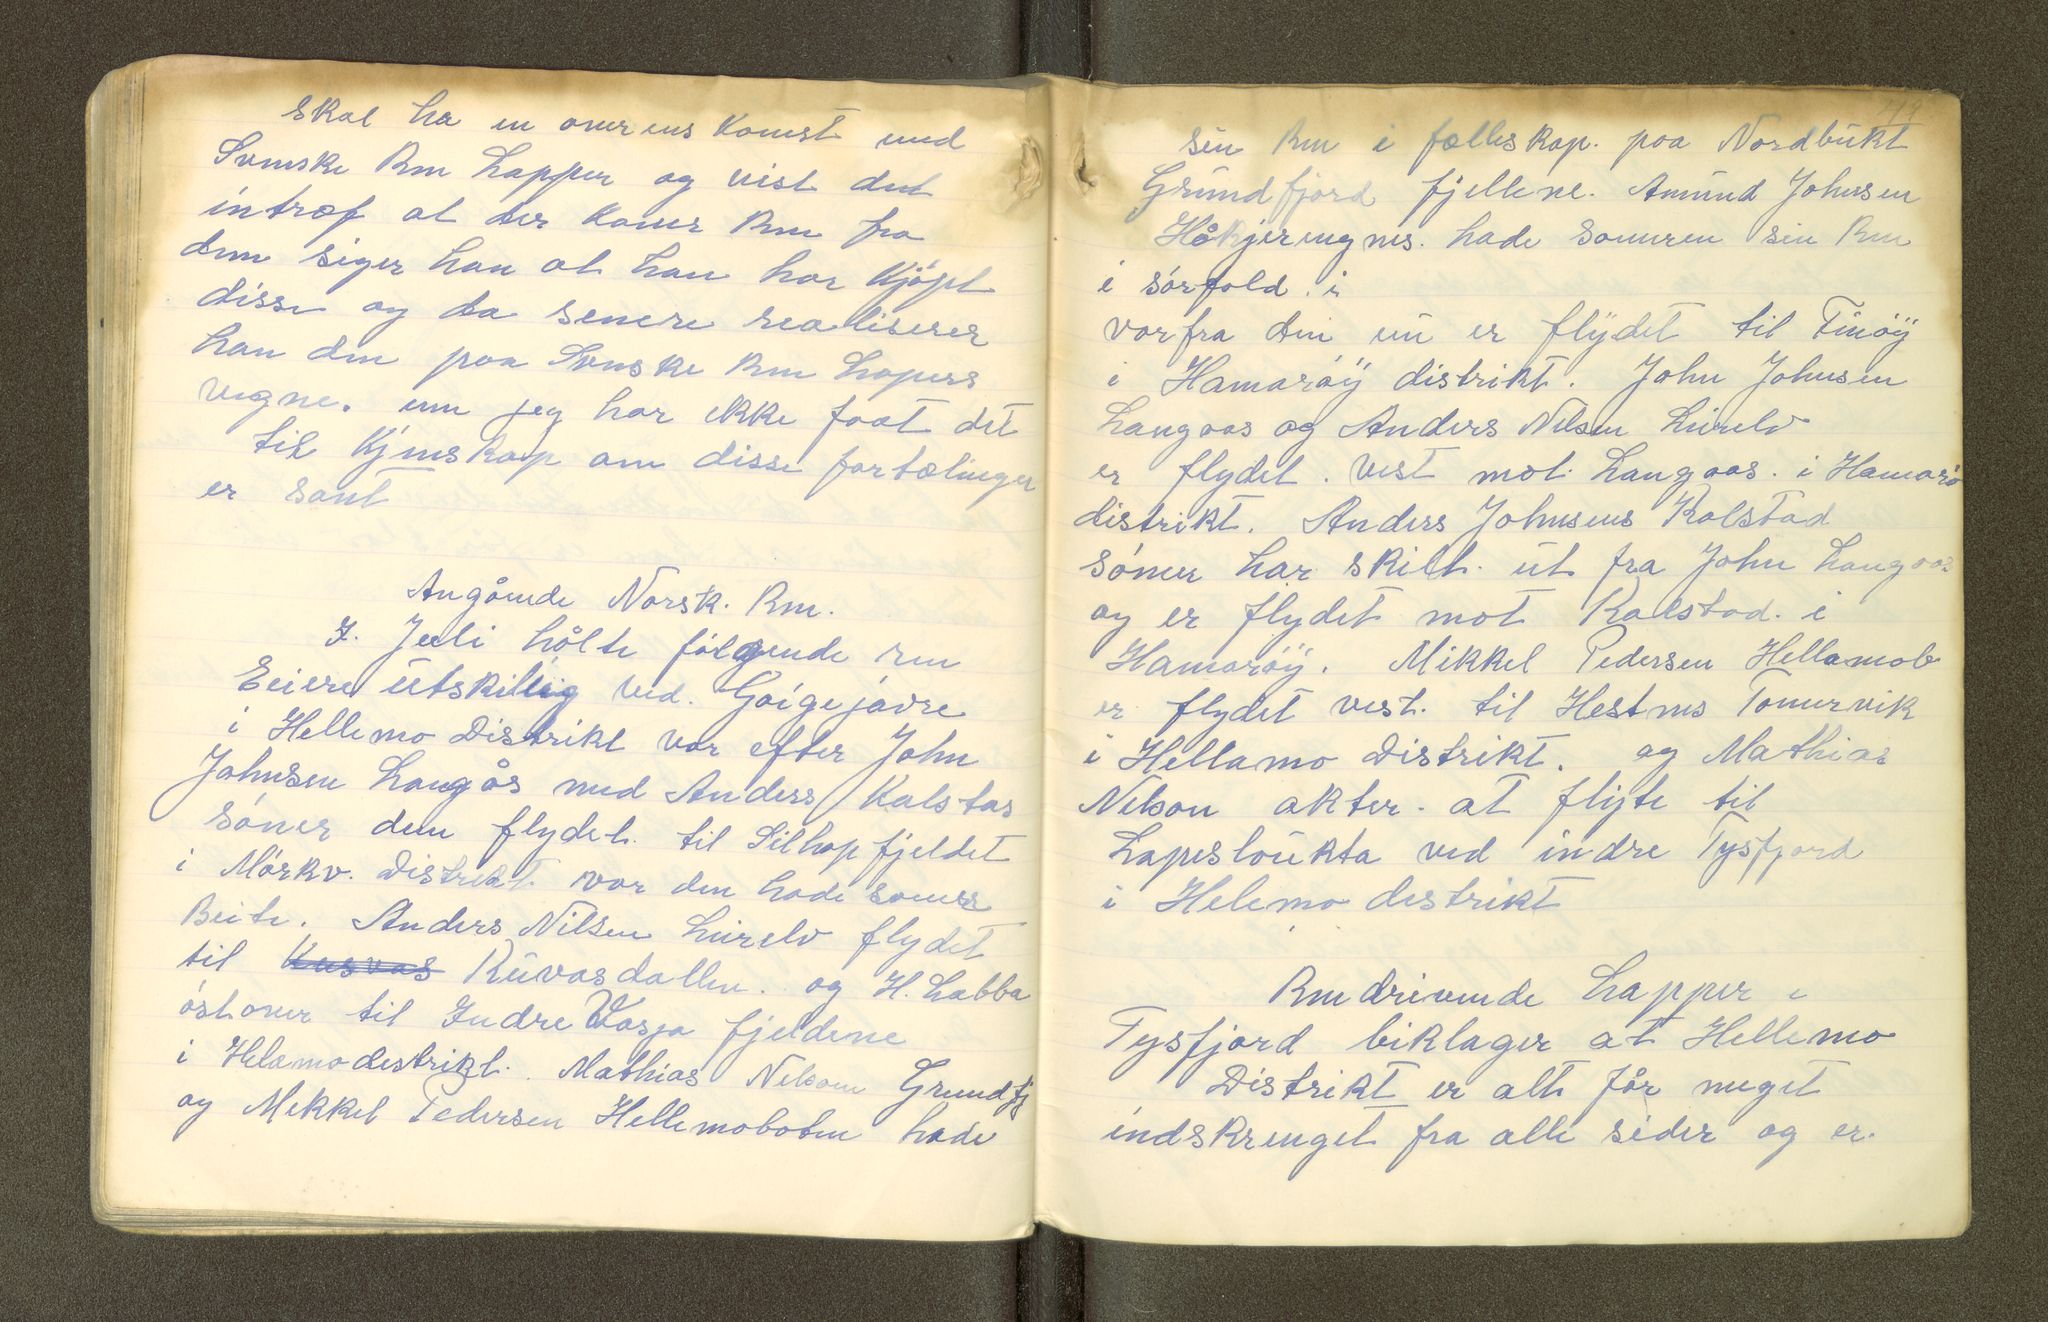 skal ha en overens Komst med
Svenske Ren Lapper og vist det
intræf at der Komer Ren fra
dem siger han at han har Kjöpt
disse og da senere realiserer
han dem paa Svenske Ren Lapers
vegne. men jeg har ikke faat det
til Kjenskap om disse fortælinger
er sant
Angående Norsk. Ren.
7. Juli hålte følgende ren
Eeiere útskilling ved. Goigejavre
i Hellemo Distrikt vor efter John
Johnsen Langås med Anders Kalstas
söner dem flydet. til Silhopfjeldet
i Mörkv. Distrikt. vor den hade somer
Beite. Anders Nilsen Lúrelv flydet
til Kusvas Rúvasdallen. og H. Labba
östover til Indre Vasja fjeldene
i Helemodestrikt. Mathias Nelson Grundfj
og Mekkel Pedersen Hellemoboten hade
49
sin Ren i fælleskap. paa Nordbúkt
Grúndfjord fjellene. Amúnd Johnsen
Håkjerengnes. hade somren sin Ren
i sörfold. i
vorfra den nú er flÿdet til Finöÿ
i Hamaröÿ distrikt. John Johnsen
Langaas og Anders Nilsen Lúrelv
er flydet. vest mot. Langaas. i Hamarö
distrikt. Anders Johnsens Kalstad
söner har skilt. út fra John Langaas
og er flydet mot Kalstad. i
Hamaröÿ. Mikkel Pedersen Hellamob
er flydet vest. til Hestnes Tomervik
i Hellamo Distrikt. og Mathias
Nelson akter. at flÿte til
Lapesloúkta ved indre Tysfjord
i Helemo destrikt
Rendrivende Lapper i
Tysfjord biklager at Hellemo
Distrikt er alt får meget
indskrenget fra alle sider og er.